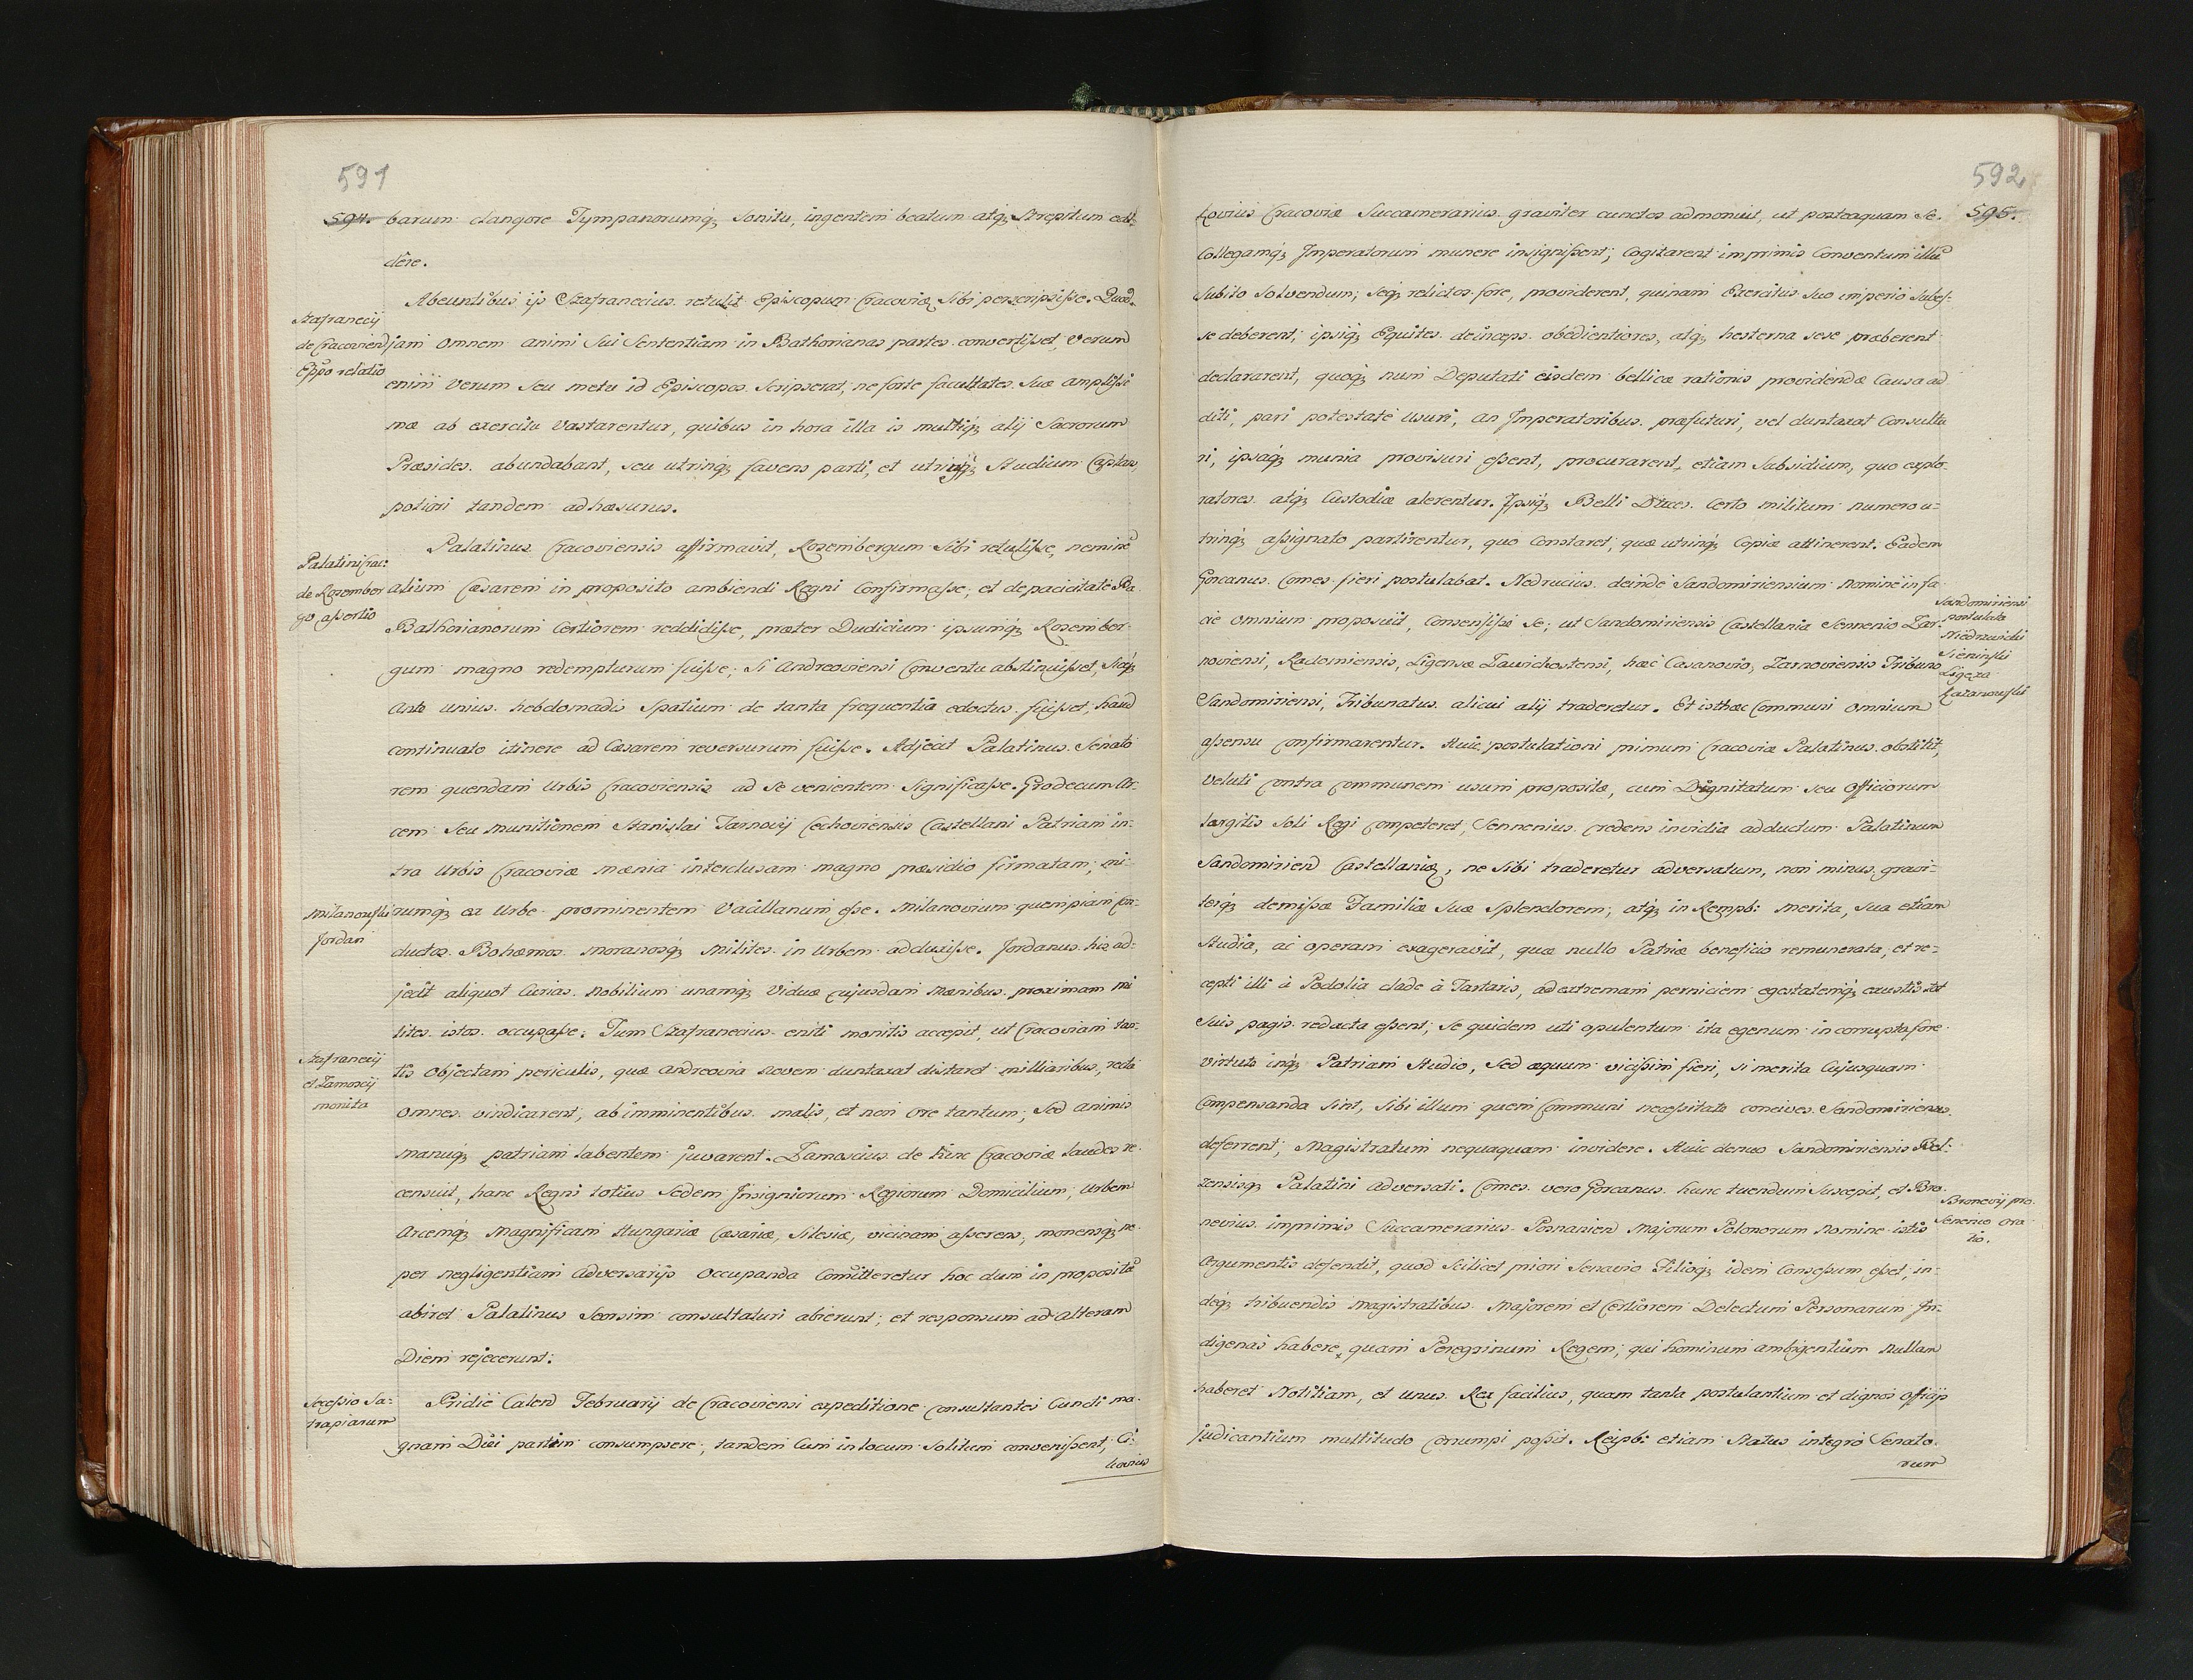 591
594. barum clangore Tympanorumq; sonitu, ingentem beatum atq; strepitum edi-
dêre.
Abeuntibus ijs Szafranecius retulit Episcopum Cracoviæ sibi perscripsisse. Quod
Szafranecij
de Cracovien
Eppo relatio
jam omnem animi sui sententiam in Bathorianas partes convertisset, verum
enim verum seu metu id Episcopus scripserat, ne forte facultates suæ amplissi
mæ ab exercitu vastarentur, quibus in hora illa is multiq; alij Sacrorum
Præsides abundabant, seu utrinq; favens parti, et utriusq; studium captans,
potiori tandem adhæsurus.
Palatinus Cracoviensis affirmavit, Rosembergum sibi retulisse, neminẽ
Palatini Crac:
de Rosember
go assertio
alium Cæsarem in proposito ambiendi Regni confirmasse, et de paucitate
Bathorianorum certiorem reddidisse, præter Dudicium ipsumq; Rosember
gum magno redempturum fuisse; si Andreoviensi Conventu abstinuisset, siq;
ante unius hebdomadis spatium de tanta frequentia edoctus fuisset, haud
continuato itinere ad Cæsarem reversurum fuisse. Adjecit Palatinus Senato
rem quendam Urbis Cracoviensis ad se venientem significasse. Grodecum Ar-
cem seu munitionem Stanislai Tarnovij Cechoviensis Castellani Patriam in-
tra Urbis Cracoviæ mænia interclusam magno præsidio firmatam, mi-
Milanowski
Jordan
rumq; ex Urbe prominentem Vaållanum esse. Milanovium quempiam con-
ductos Bohæmos Moravosq; milites in Urbem adduxisse. Jordanus his ad-
jecit aliquot Curias Nobilium unamq; Viduæ cujusdam Mænibus proximam mi
lites istos occupasse. Tum Szafranecius eniti monitis accepit, ut Cracoviam tan-
Szafranecij
et Zamoscij
monita
tis objectam periculis, quæ Andreovia novem duntaxat distaret milliaribus, recta
omnes vindicarent, ab imminentibus malis, et non ore tantum, sed animis
manuq; patriam labentem juvarent. Zamoscius de hinc Cracoviæ laudes re
censuit, hanc Regni totius Sedem Insigniorum Regiorum Domicilium, Urbem
Arcemq; Magnificam Hungariæ Cæsariæ, Silesiæ, vicinam asserens, monensq; ne
per negligentiam adversarijs occupanda comitteretur hoc dum in propositũ
abiret Palatinus seorsim consultaturi abierunt, et responsum ad alteram
Diem rejecerunt.
Secessio Sa-
trapiarum
Pridie Calend Februarij de Cracoviensi expeditione consultantes Cuncti ma-
gnam Diei partem consumpsere, tandem cum in locum solitum convenissent, Ci-
kovius
592
595.
kovius Cracoviæ Succamerarius graviter cunctos admonuit, ut posteaquam se
Collegamq; Imperatorum munere insignissent; cogitarent imprimis Conventum illũ
subito solvendum; seq; relictos fore, providerent, quinam Exercitus suo imperio subes-
se deberent, ipsiq; Equites deinceps obedientiores, atq; hesterna sese præberent
declararent, quoq; num Deputati eisdem bellicæ rationis providendæ causa ad
diti, pari potestate usuri, an Imperatoribus præfuturi, vel duntaxat consultu
ri, ipsaq; munia provisuri essent, procurarent etiam subsidium, quo explo-
ratores atq; Custodiæ alerentur. Ipsiq; Belli Duces certo militum numero u-
trinq; assignato partirentur, quo constaret, quæ utrinq; copiæ attinerent. Eadem
Gorcanus Comes fieri postulabat. Nedrucius deinde Sandomiriensium nomine in fa
Sandomiriensi
postulata
Niedrzwicki
Sieninski
Ligeza
Kazanowski
cie omnium proposuit, consensisse se, ut Sandomiriensis Castellania Sennenio Zar-
noviensi, Radomiensis, Ligensæ Zawichostensi, hæc Casanovio, Zarnoviensis Tribuno
Sandomiriensi, Tribunatus alicui alij traderetur. Et isthæc communi omnium
assensu confirmarentur. Huic postulationi primum Cracoviæ Palatinus obstitit,
veluti contra communem usum propositæ, cum Dignitatum seu Officiorum
largitio soli Regi competeret, Sennenius credens invidia adductum Palatinum
Sandomirien Castellaniæ, ne sibi traderetur adversatum, non minus gravi-
terq; demissæ Familiæ suæ splendorem, atq; in Rempb: merita, sua etiam
studia, ac operam exageravit, quæ nullo Patriæ beneficio remunerata, et re-
cepti illi à Podolia clade à Tartaris, ad extremam perniciem egestatemq; exustis tot
suis pagis redacta essent; se quidem uti opulentum ita egenum in corrupta fore
virtute inq; Patriam studio, sed æquum vicissim fieri, si merita cujusquam
compensanda sint, sibi illum quem communi necessitate concives Sandomirienses
deferrent, Magistratum nequaquam invidere. Huic denuo Sandomiriensis Bel-
zensisq; Palatini adversati. Comes vero Gorcanus hunc tuendum suscepit, et Bro
Bronevij pro
Senenio ora
tio.
nevius imprimis Succamerarius Posnanien Majorum Polonorum nomine istis
Argumentis defendit, quod scilicet priori Senavio Filioq; idem Consessum esset, in-
deq; tribuendis Magistratibus Majorem et Certiorem Delectum Personarum In-
digenas habere, quam Peregrinum Regem, qui hominum ambigentium nullam
haberet Notitiam, et unus Rex facilius, quam tanta postulantium et dignos Officijs
judicantium multitudo corrumpi possit. Reipb: etiam Status integro Senato-
rum